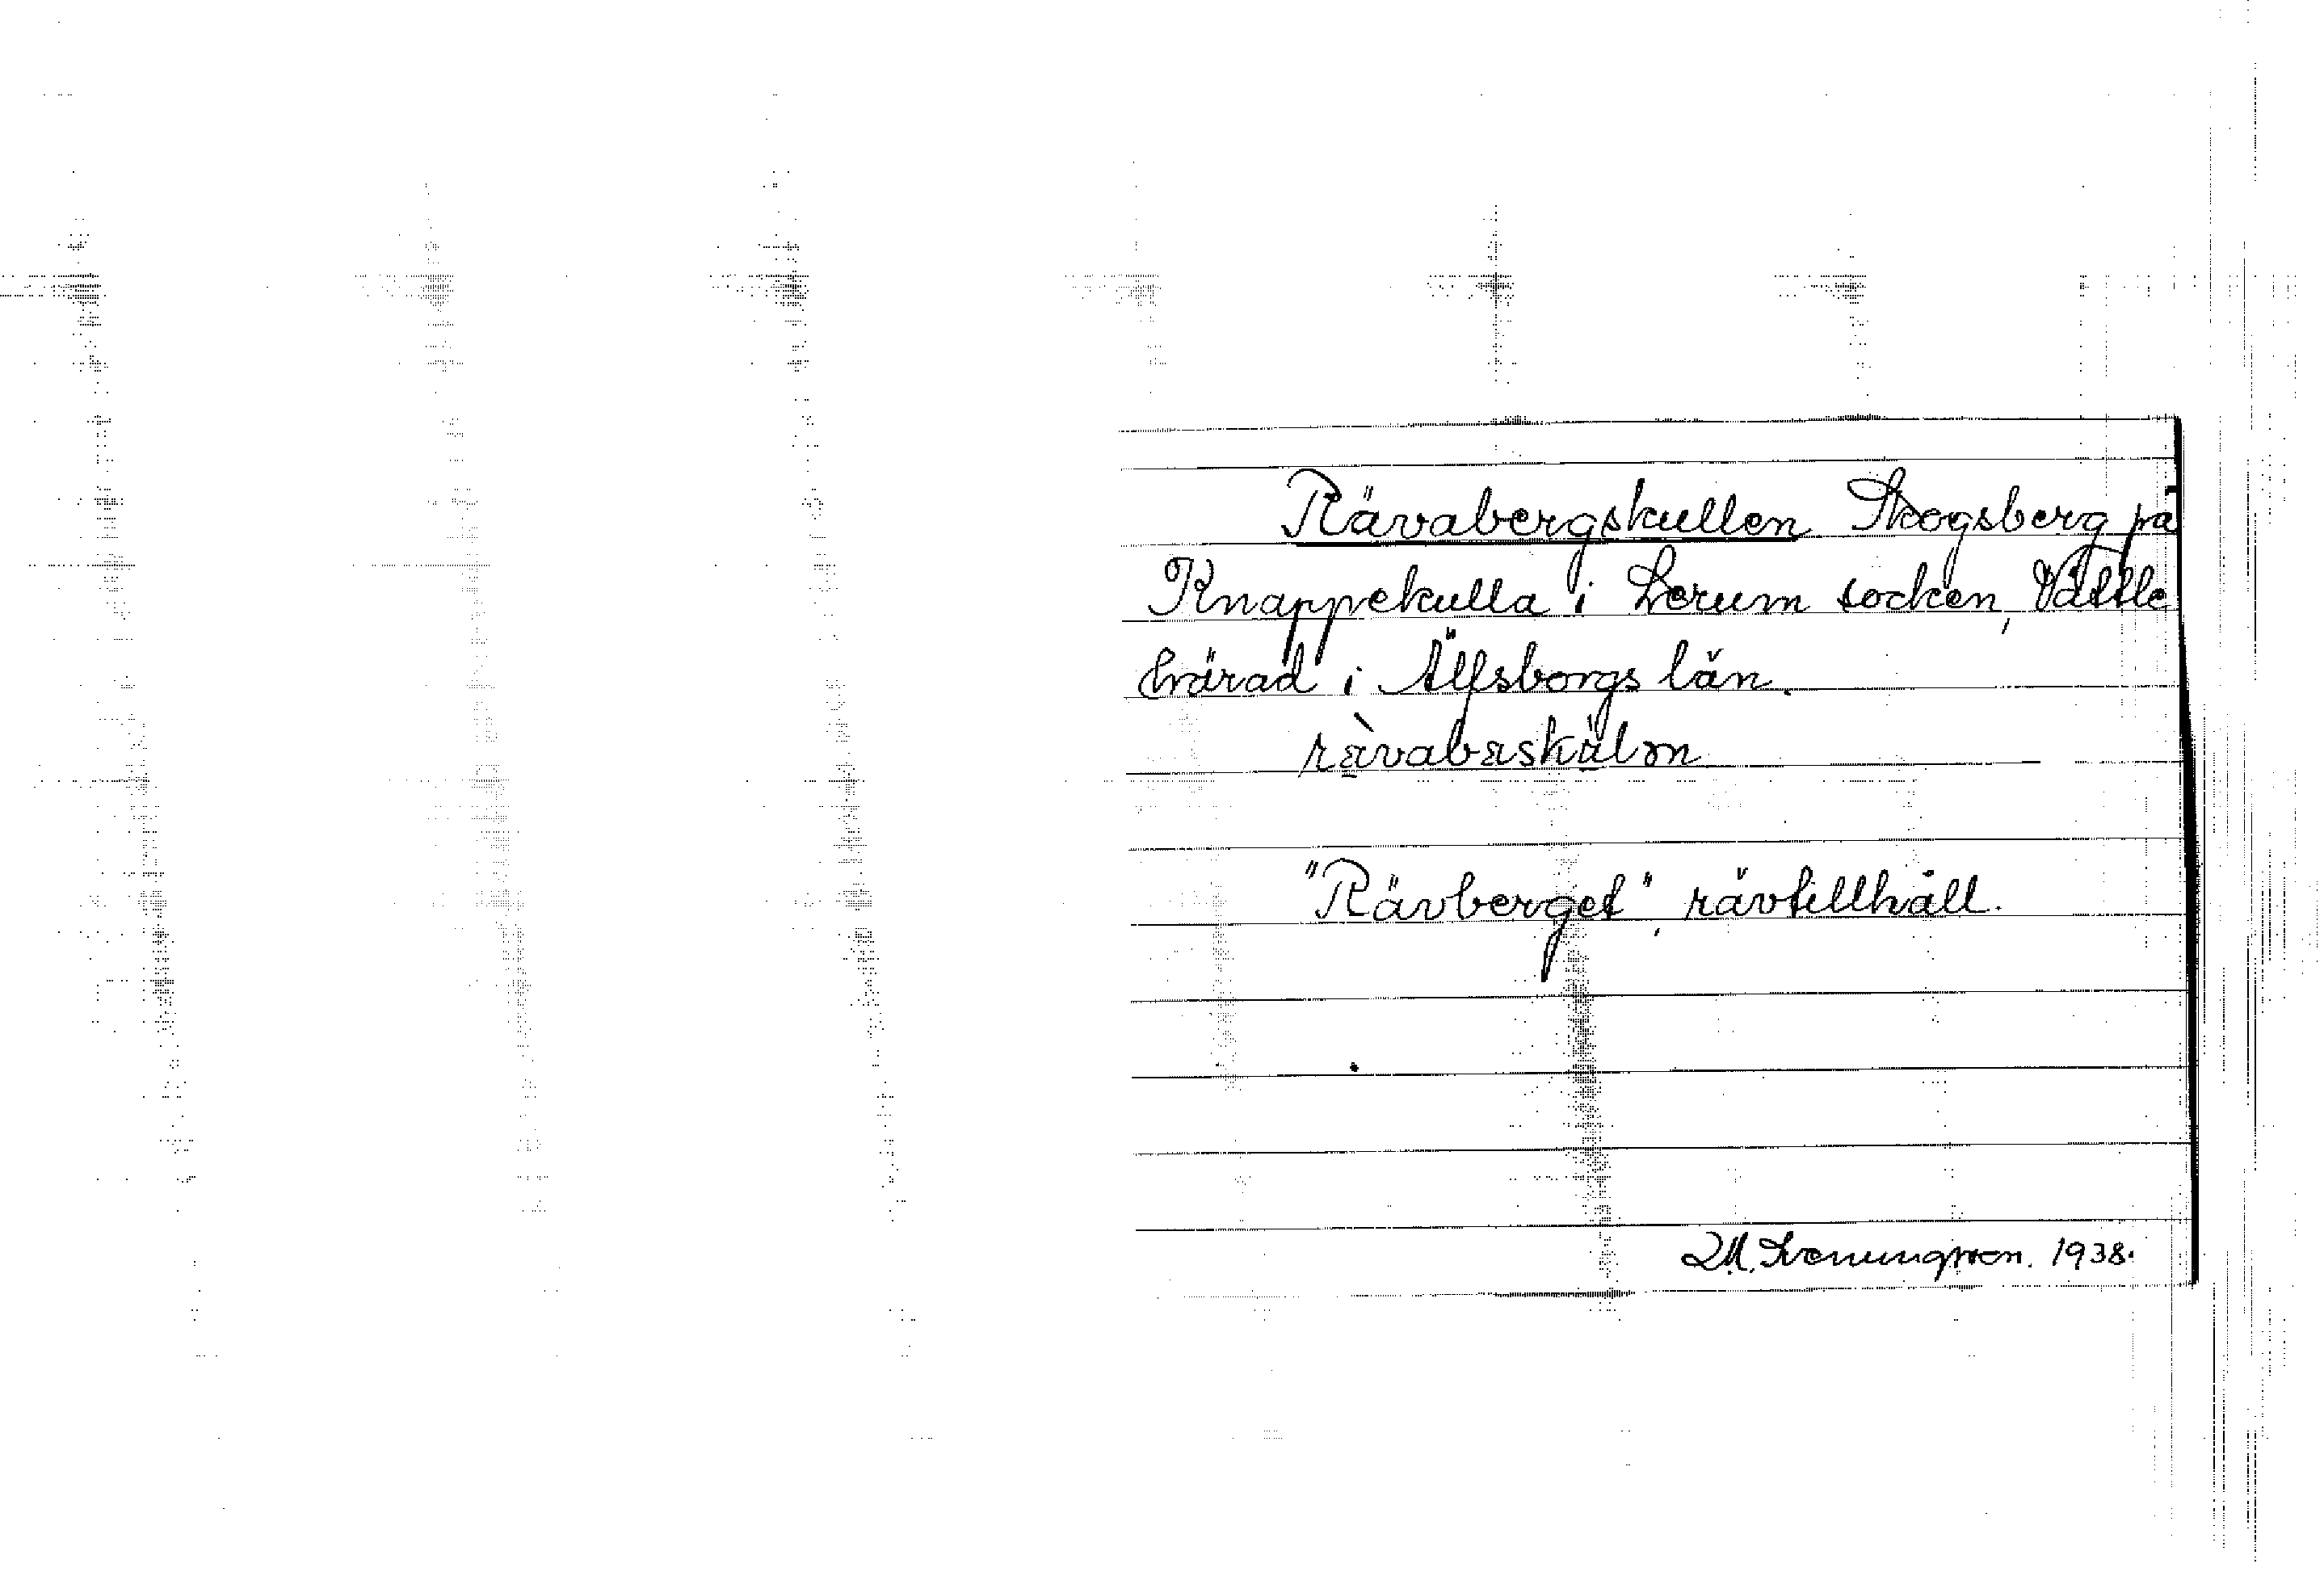 Rävabergskullen Skogsberg på
Knappekulla i Lerum socken, Vättle
härad i Älfsborgs län.
"Rävberget", rävtillhåll.
Svenungsson. 1938.